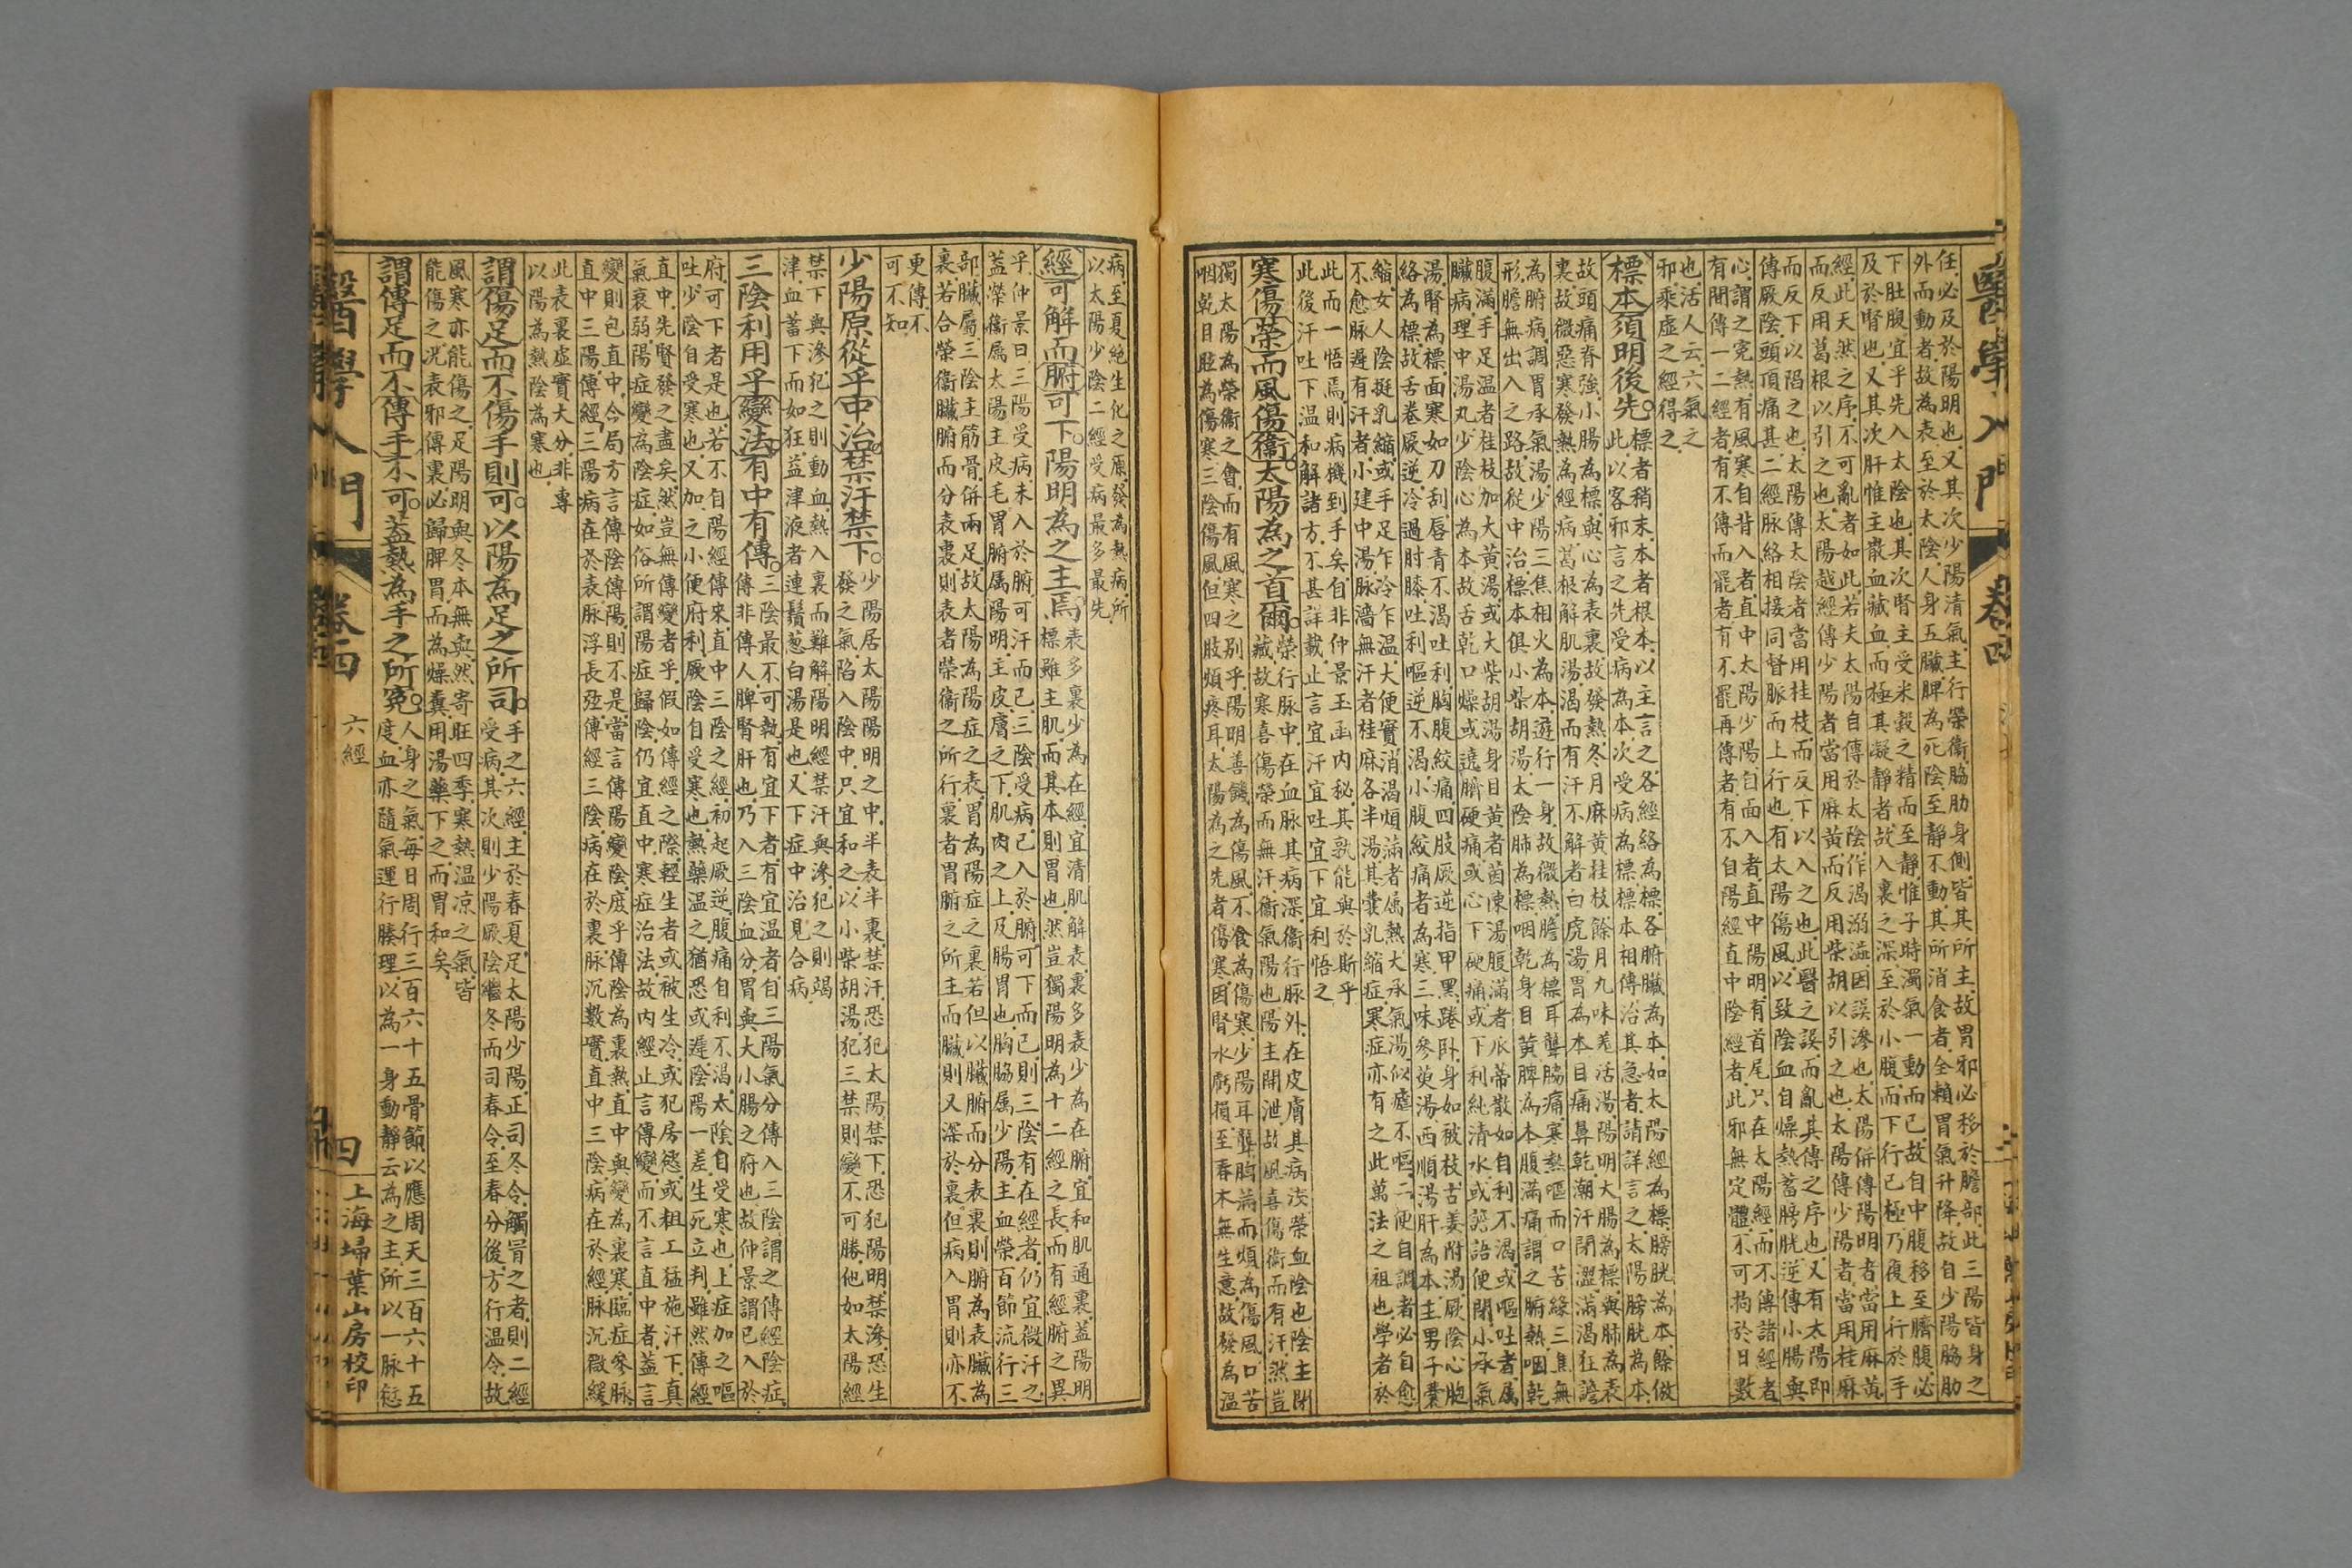 醫學入門 卷四
任必及於陽明也又其次少陽清氣主行榮衞脇肋身側皆其所主故胃邪必移於膽部此三陽皆身之
外而動者故為表至於太陰人身五臟脾為死陰至靜不動其所消食者全賴胃氣升降故自少陽脇肋
下肚腹宜乎先入太陰也其次腎主受米穀之精而至靜惟子時濁氣一動而已故自中腹移至臍腹必
及於腎也又其次肝惟主散血藏血而極其凝靜者故入裏之深至於小腹而下行已極乃復上行於手
經此天然之序不可亂者如此若夫太陽自傳於太陰作渴溺溢因誤滲也太陽併傳陽明者當用麻黃
而反用葛根以引之也太陽越經傳少陽者當用麻黃而反用柴胡以引之也太陽傳少陽者當用桂麻
而反下以陷之也太陽傳太陰者當用桂枝而反下以入之也此醫之誤而亂其傳之序也又有太陽即
傳厥陰頭頂痛其二經脉絡相接同督脈而上行也有太陽傷風以致陰血自燥熱蓄膀胱逆傳小腸與
心謂之寃熱有風寒自背入者直中太陽少陽自面入者直中陽明有首尾只在太陽經而不傳諸經者
有間傳一二經者有不傳而罷者有不罷再傳者有不自陽經直中陰經者此邪無定體不可拘於日數
也活人云六氣之
邪乘虛之經得之
標本須明後先。
標者稍末本者根本以主言之各經絡為標各腑臟為本如太陽經為標膀胱為本餘倣
此以客邪言之先受病為本次受病為標標本相傳治其急者請詳言之太陽膀胱為本
故頭痛脊強小腸為標與心為表裏故發熱冬月麻黃桂枝餘月九味羌活湯陽明大腸為標與肺為表
裏故微惡寒發熱為經病葛根解肌湯渴而有汗不解者白虎湯胃為本目痛鼻乾潮汗閉澀滿渴狂譫
為腑病調胃承氣湯少陽三焦相火為本遊行一身故微熱膽為標耳聾脇痛寒熱嘔而口苦緣三焦無
形膽無出入之路故從中治標本俱小柴胡湯太陰肺為標咽乾身目黃脾為本腹滿痛謂之腑熱咽乾
腹滿手足溫者桂枝加大黃湯或大柴胡湯身目黃者茵陳湯腹滿者瓜蒂散如自利不渴或嘔吐者屬
臟病理中湯丸少陰心為本故舌乾口燥或遶臍硬痛或心下硬痛或下利純清水或譫語便閉小承氣
湯腎為標面寒如刀刮唇青不渴吐利胸腹絞痛四肢厥逆指甲黑踡卧身如被杖古姜附湯厥陰心胞
絡為標故舌卷厥逆冷過肘膝吐利嘔逆不渴小腹絞痛者為寒三味參萸湯四順湯肝為本主男子囊
縮女人陰挺乳縮或手足乍冷乍溫大便實消渴煩滿者屬熱大承氣湯似瘧不嘔二便自調者必自愈
不愈脉遲有汗者小建中湯脉濇無汗者桂麻各半湯其囊乳縮症寒症亦有之此萬法之祖也學者於
此而一悟焉則病機到手矣自非仲景玉函內秘其孰能與於斯乎
此後汗吐下溫和解諸方不甚詳載止言宜汗宜吐宜下宜利悟之
寒傷榮而風傷衞。太陽為之首爾。
榮行脉中在血脉其病深衞行脉外在皮膚其病淺榮血陰也陰主閉
藏故寒喜傷榮而無汗衞氣陽也陽主開泄故風喜傷衞而有汗然豈
獨太陽為榮衞之會而有風寒之別乎陽明善饑為傷風不食為傷寒少陽耳聾胸滿而煩為傷風口苦
咽乾目眩為傷寒三陰傷風但四肢煩疼耳太陽為之先者傷寒因腎水虧損至春木無生意故發為溫
病至夏絕生化之原發為熱病所
以太陽少陰二經受病最多最先
經可解而腑可下。陽明為之主焉。
標雖主肌而其本則胃也然豈獨陽明為十二經之長而有經腑之異
乎仲景曰三陽受病未入於腑可汗而已三陰受病已入於腑可下而已則三陰有在經者仍宜微汗之
蓋榮衞屬太陽主皮毛胃腑屬陽明主皮膚之下肌肉之上及腸胃也胸脇屬少陽主血榮百節流行三
部臟屬三陰主筋骨併兩足故太陽為陽症之表胃為陽症之裏若但以臟腑而分表裏則腑為表臟為
裏若合榮衞臟腑而分表裏則表者榮衞之所行裏者胃腑之所主而臟則又深於裏但病入胃則亦不
更傳不
可不知
少陽原從乎中治。禁汗禁下。
少陽居太陽陽明之中半表半裏禁汗恐犯太陽禁下恐犯陽明禁滲恐生
發之氣陷入陰中只宜和之以小柴胡湯犯三禁則變不可勝他如太陽經
禁下與滲犯之則動血熱入裏而難解陽明經禁汗與滲犯之則竭
津血蓄下而如狂益津液者連鬚葱白湯是也又下症中治見合病
三陰利用乎變法。有中有傳。
三陰最不可執有宜下者有宜溫者自三陽氣分傳入三陰謂之傳經陰症
傳非傳人脾腎肝也乃入三陰血分胃與大小腸之府也故仲景謂已入於
府可下者是也若不自陽經傳來直中三陰之經初起厥逆腹痛自利不渴太陰自受寒也上症加之嘔
吐少陰自受寒也又加之小便府利厥陰自受寒也熱藥溫之猶恐或遲陰陽一差生死立判雖然傳經
直中先賢發之盡矣然豈無傳變者乎假如傳經之際輕生者或被生冷或犯房慾或粗工猛施汗下真
氣衰弱陽症變為陰症如俗所謂陽症歸陰仍宜直中寒症治法故內經止言傳變而不言直中者蓋言
變則包直中合局方言傳陰傳陽則不是當言傳陽變陰庶乎傳陰為裏熱直中與變為裏寒臨症參脉
直中三陽傳經三陽病在於表脉浮長弦傳經三陰病在於裏脉沉數實直中三陰病在於經脉沉微緩
此表裏虛實大分非專
以陽為熱陰為寒也
謂傷足而不傷手則可。以陽為足之所司。
手之六經主於春夏足太陽少陽正司冬令觸冒之者則二經
受病其次則少陽厥陰繼冬而司春令至春分後方行溫令故
風寒亦能傷之足陽明與冬本無與然寄旺四季寒熱溫涼之氣皆
能傷之況表邪傳裏必歸脾胃而為燥糞用湯藥下之而胃和矣
謂傳足而不傳手不可。蓋熱為手之所寃。
人身之氣每日周行三百六十五骨節以應周天三百六十五
度血亦隨氣運行腠理以為一身動靜云為之主所以一脉愆
醫學入門 卷四 六經 四 上海埽葉山房校印